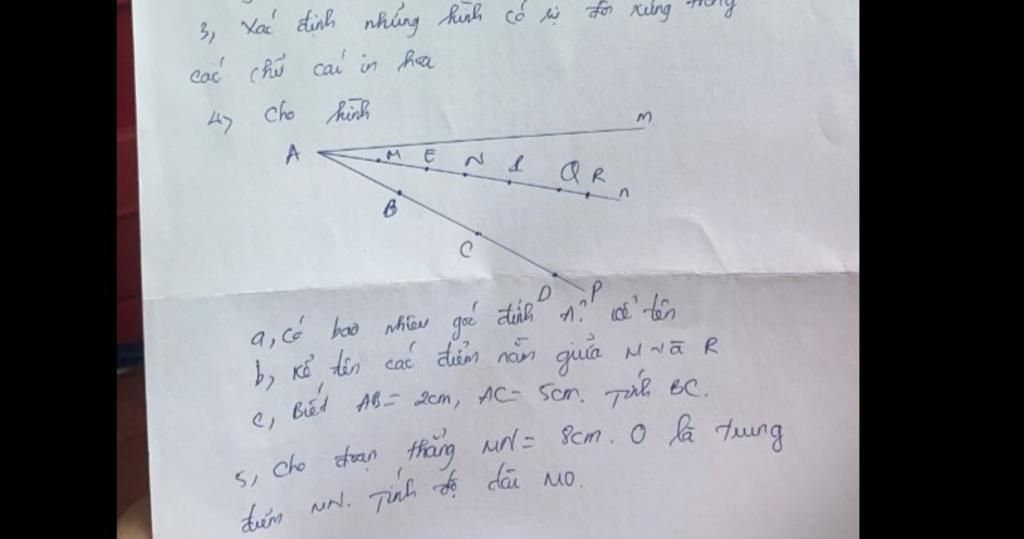 3, Xác định những hình có sự đối xứng trong
các chữ cái in hoa
4, Cho hình
m
A M E N I Q R n
B
C
D P
a, Có bao nhiêu góc đỉnh A? Kể tên
b, Kể tên các điểm nằm giữa M và R
c, Biết AB = 2cm, AC = 5cm. Tính BC.
5, Cho đoạn thẳng MN = 8cm. O là trung
điểm MN. Tính độ dài MO.